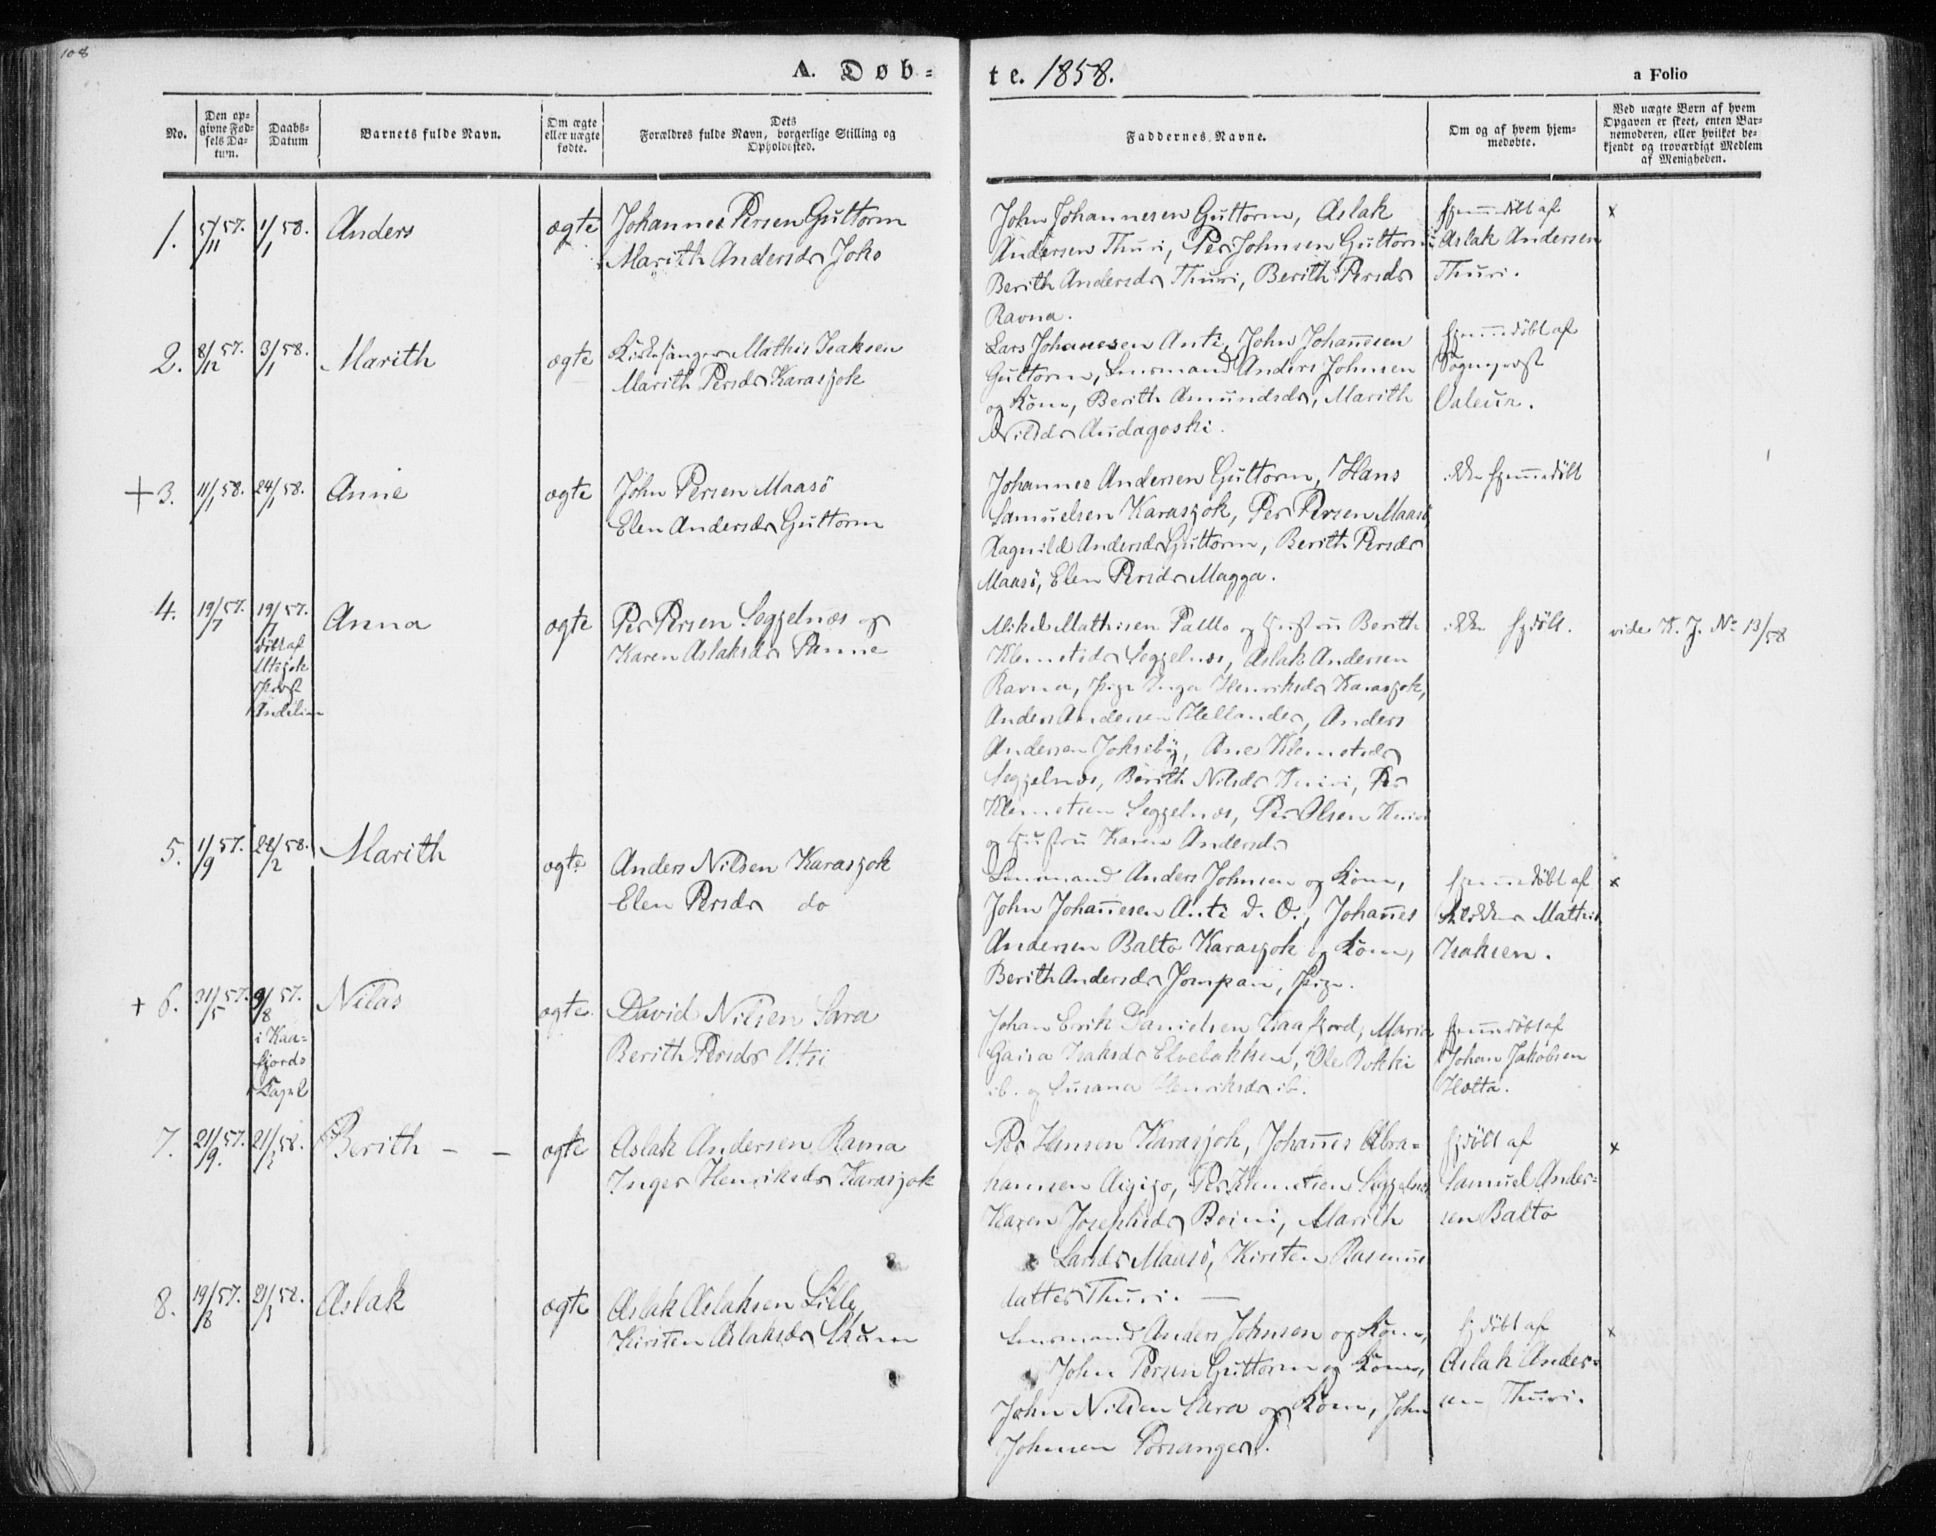 108
A. Døb-
te. 1858.
a Folio
No.
Den op-
givne Fød-
sels Da-
tum.
Daabs-
Datum
Barnets fulde Navn.
Om ægte
eller uægte
fødte.
Dets
Forældres fulde Navn, borgerlige Stilling og
Opholdssted.
Faddernes Navne.
Om og af hvem hjem-
medøbte.
Ved uægte Børn af hvem
Opgaven er skeet, enten Bar-
nemoderen, eller hvilket be-
kjendt og troværdigt Medlem
af Menigheden.
1.
5/11 57.
1/1 58.
Anders
ægte
Johannes Persen Guttorm
Marith Andersdr Joks
John Johannesen Guttorm, Aslak
Andersen Thuri, Per Johnsen Guttorm
Berith Andersdr Thuri, Berith Persdr
Ravna.
hjemmedöbt af
Aslak Andersen
Thuri.
x
2.
8/12 57.
3/1 58.
Marith
ægte
Kirkesanger Mathis Isaksen
Marith Persdr Karasjok
Lars Johanesen Anti, John Johanesen
Guttorm, Lensmand Anders Johnsen
og Kone, Berith Amundsdr, Marith
Nilsdr Audagoski.
hjemmedöbt af
Sogneprest
Valeur.
+ 3.
11/1 58.
24/1 58.
Anne
ægte
John Persen Maasö
Elen Andersdr Guttorm
Johannes Andersen Guttorm, Hans
Samuelsen Karasjok, Per Persen Maasö
Ragnild Andersdr Guttorm, Berith Persdr
Maasö, Elen Persdr Magga.
ikke hjemmedöbt
4.
19/7 57.
19/7 57.
döbt af
Utsjok
Prost
Andelin
Anna
ægte
Per Persen Seggelnæs og
Karen Aslaksdr Panne
Mikel Mathisen Pallo og Hustru Berith
Klemetsdr Seggelnæs, Aslak Andersen
Ravna, Pige Inga Henriksdr Karasjok,
Anders Andersen Hellander, Anders
Andersen Jokseby, Ane Klemetsdr
Seggelnæs, Berith Nilsdr Kuivi, Per
Klemetsen Seggelnæs, Per Olsen Kuivi
og Hustru Karen Andersdr
ikke hjdöbt.
vide K. J. No 13/58
5.
1/9 57.
28/2 58.
Marith
ægte
Anders Nilsen Karasjok
Elen Persdr do
Lensmand Anders Johnsen og Kone,
John Johanesen Anti d. O., Johanes
Andersen Balto Karasjok og Kone,
Berith Andersdr Jompan, Pige.
hjemmedöbt af
Klokker Mathis
Isaksen.
x
+ 6.
31/5 57.
9/8 57.
i Kaa-
fjords
Capel
Nilas
ægte
David Nilsen Sara
Berith Persdr Utsi
Johan Erik Danielsen Kaafjord, Maria
Gaira Isaksdr Elvebakken, Ole Bokki
ib. og Susana Henriksdr ib.
hjemmedöbt af
Johan Jakobsen
Holta.
7.
21/9 57.
21/3 58.
Berith - -
ægte
Aslak Andersen Ravna
Inger Henriksdr Karasjok
Per Hansen Karasjok, Johanes Abra-
hamsen Aigigo, Per Klemetsen Seggelnæs
Karen Josephsdr Boini, Marith
Larsdr Maasö, Kirsten Rasmus
datter Thuri. —
hjdöbt af
Samuel Ander-
sen Balto
x
8.
19/8 57.
21/3 58.
Aslak
ægte
Aslak Aslaksen Lille,
Kirsten Aslaksdr Skum
Lensmand Anders Johnsen og Kone,
John Persen Guttorm og Kone,
John Nilsen Sara og Kone, John
Johnsen Porsanger.
hjdöbt af
Aslak Ander-
sen Thuri.
x